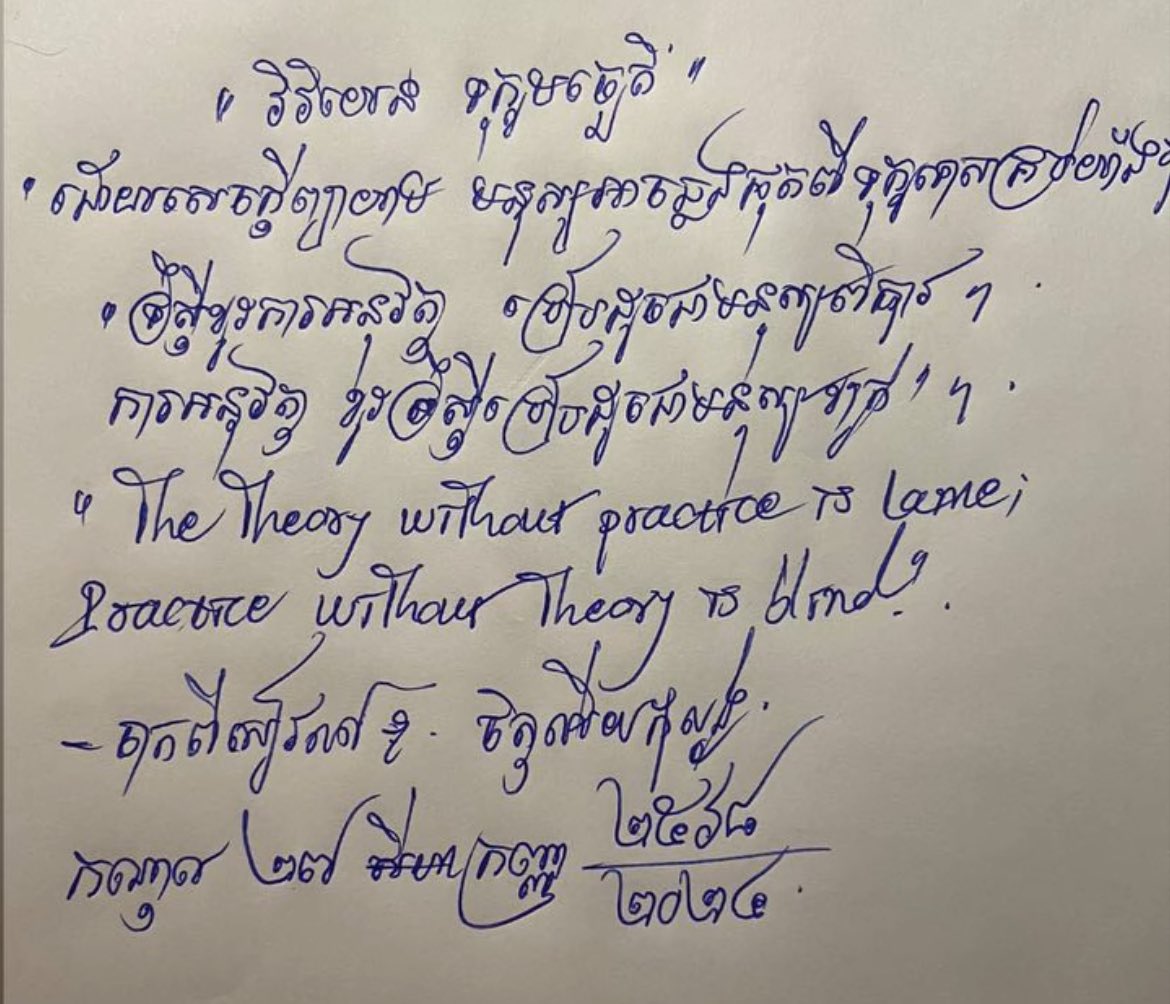 " វិរិយេន ទុក្ខមច្ចេតិ "
" ដោយសេចក្តីព្យាយាម មនុស្សអាចឆ្លងផុតពីទុក្ខទោសគ្រប់យ៉ាង
" ទ្រឹស្តីខ្វះការអនុវត្ត ប្រៀបដូចជាមនុស្សពិការ ។
ការអនុវត្ត ខ្វះទ្រឹស្តីប្រៀបដូចជាមនុស្សខ្វាក់ " ។
" The Theory without practice is lame;
Practice without Theory is blind".
- ដកពីសៀវភៅ ខ្ញុំ. ចិត្តអើយកុំស្មូង.
កណ្ដាល ២៧ សីហា ក្រញ្ញ ២៥៦៨
២០២៤.